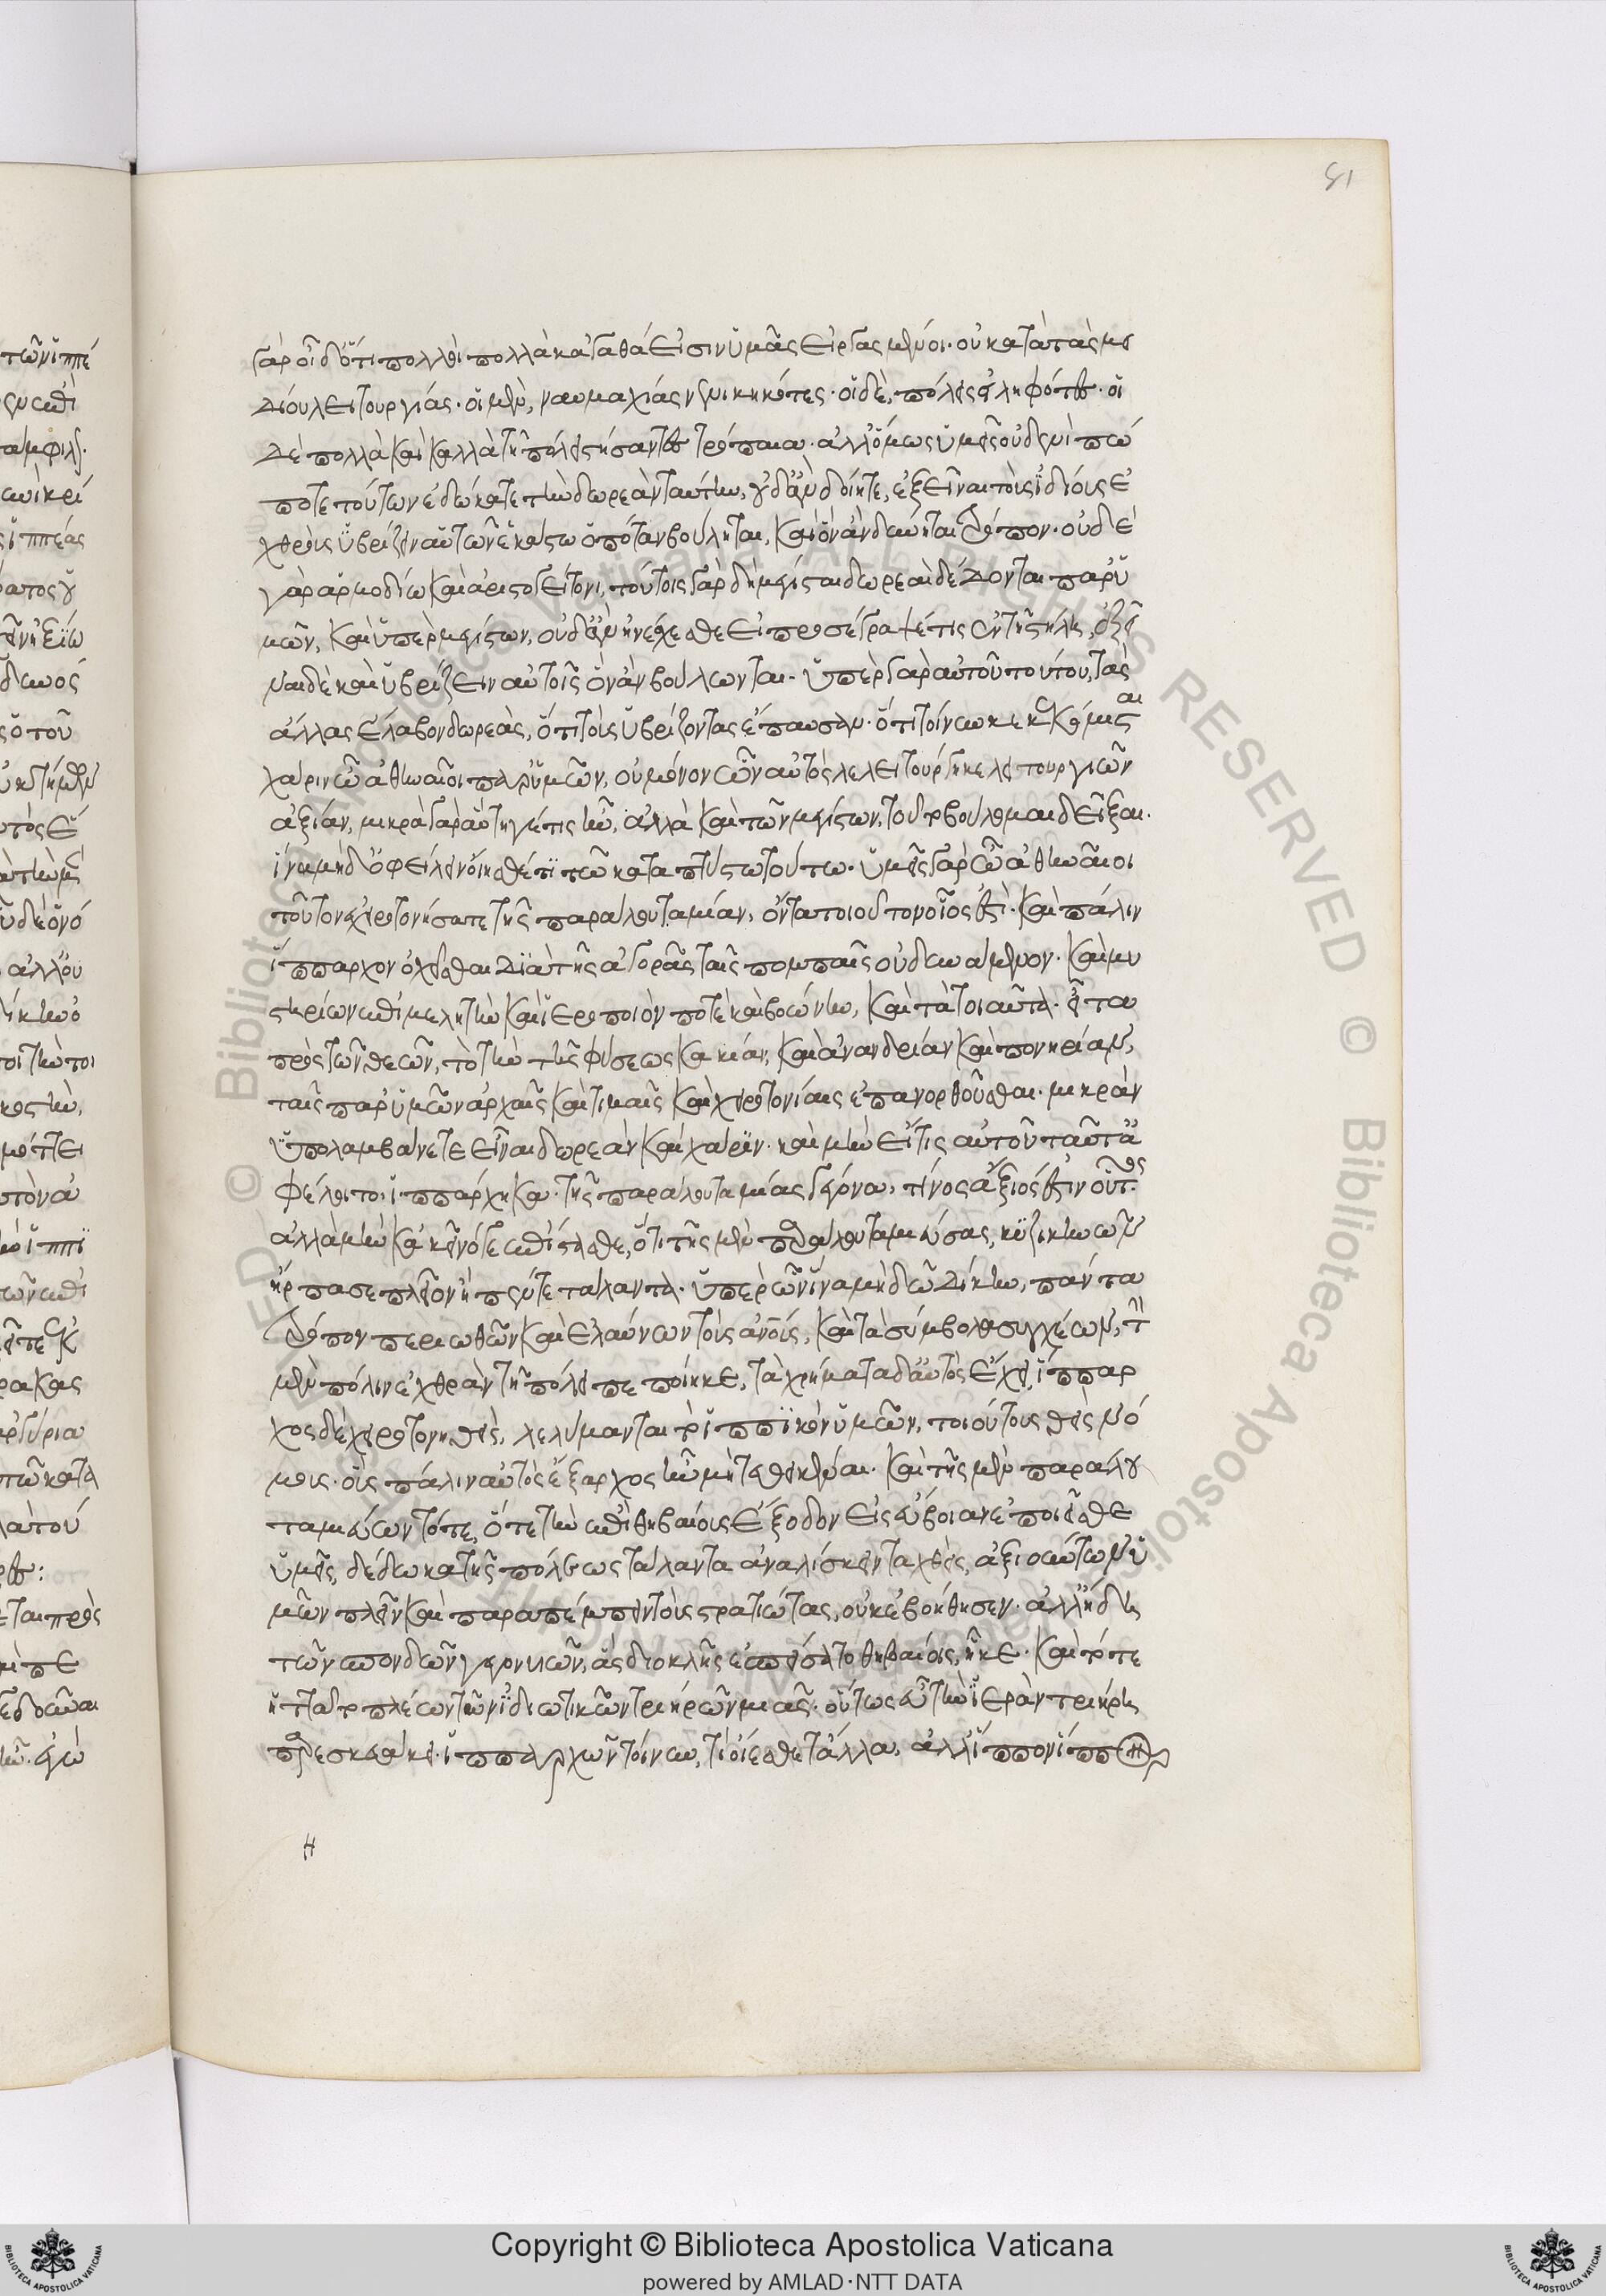 81
γὰρ οἶδ' ὅτι πολλοὶ πολλὰ κἀγαθά εἰσιν ὑμᾶς εἰργασμένοι· οὐ κατὰ τὰς με
δίου λειτουργίας· οἱ μὲν, ναυμαχίας νενικηκότες· οἱ δὲ, πόλεις εἰληφότες· οἱ
δὲ πολλὰ καὶ καλλὰ τῆ πόλει στήσαντες τρόπαια· ἀλλ' ὅμως ὑμεῖς οὐδενὶ πώ
ποτε τούτων ἐδώκατε τὴν δωρεὰν ταύτην, οὐδ' ἂν δοίητε, ἐξεῖναι τοῖς ἰδίοις ἐ
χθροῖς ὑβρίζειν αὑτῶν ἑκάστω ὁπόταν βούληται, καὶ ὃν ἂν δύνηται τρόπον· οὐδὲ
γὰρ ἁρμοδίω καὶ ἀριστογείτονι, τούτοις γὰρ δὴ μέγισται δωρεαὶ δέδονται παρ' ὑ
μῶν, καὶ ὑπὲρ μεγίστων, οὐδ' ἂν ἠνέσχεσθε εἰ προσέγραψέ τις ἐν τῆ στήλη, ἐξεῖ
ναι δὲ καὶ ὑβρίζειν αὐτοῖς ὃν ἂν βούλωνται· ὑπὲρ γὰρ αὐτοῦ τούτου, τὰς
ἄλλας ἔλαβον δωρεὰς, ὅτι τοὺς ὑβρίζοντας ἔπαυσαν· ὅτι τοίνυν κεκόμισται
χάριν ὦ ἀθηναῖοι παρ' ὑμῶν, οὐ μόνον ὧν αὐτὸς λελειτούργηκε λειτουργιῶν
ἀξίαν, μικρὰ γὰρ αὕτη γέ τις ἦν, ἀλλὰ καὶ τῶν μεγίστων, τοῦτο βούλομαι δεῖξαι·
ἵνα μηδ' ὀφείλειν οἴησθέ τι τῶ καταπτύστω τούτω· ὑμεῖς γὰρ ὦ ἀθηναῖοι
τοῦτον ἐχειροτονήσατε τῆς παράλου ταμίαν, ὄντα τοιοῦτον οἷός ἐστι· καὶ πάλιν
ἵππαρχον ὀχεῖσθαι διὰ τῆς ἀγορᾶς ταῖς πομπαῖς οὐ δυνάμενον· καὶ μυ
στηρίων ἐπιμελητὴν καὶ ἱεροποιὸν ποτὲ καὶ βοώνην, καὶ τὰ τοιαῦτα· εἶτα
πρὸς τῶν θεῶν, τὸ τὴν τῆς φύσεως κακίαν, καὶ ἀνανδρίαν καὶ πονηρίαν,
ταῖς παρ' ὑμῶν ἀρχαῖς καὶ τιμαῖς καὶ χειροτονίαις ἐπανορθοῦσθαι· μικρὰν
ὑπολαμβάνετε εἶναι δωρεὰν καὶ χάριν· καὶ μὴν εἴ τις αὐτοῦ ταῦτ' ἀ
φέλοιτο, ἱππάρχηκα· τῆς παράλου ταμίας γέγονα, τίνος ἄξιός ἐστιν οὗτος·
ἀλλὰ μὴν κἀκεῖνό γε ἐπίστασθε, ὅτι τῆς μὲν παράλου ταμιεύσας, κυζικηνῶν
ἥρπασε πλεῖον ἢ πέντε τάλαντα· ὑπὲρ ὧν ἵνα μὴ δῶ δίκην, πάντα
τρόπον περιωθῶν καὶ ἐλαύνων τοὺς ἀνους, καὶ τὰ σύμβολα συγχέων, τὴν
μὲν πόλιν ἐχθρὰν τῆ πόλει πεποίηκε, τὰ χρήματα δ' αὐτὸς ἔχει, ἵππαρ
χος δὲ χειροτονηθεὶς, λελύμανται τὸ ἱππικὸν ὑμῶν, τοιούτους θεὶς νό
μους· οὓς πάλιν αὐτὸς ἔξαρχος ἦν μὴ τεθεικέναι· καὶ τῆς μὲν παράλου
ταμιεύων τότε, ὅτε τὴν ἐπὶ θηβαίους ἔξοδον εἰς εὔβοιαν ἐποιεῖσθε
ὑμεῖς, δώδεκα τῆς πόλεως τάλαντα ἀναλίσκειν ταχθεὶς, ἀξιούντων ὑ
μῶν πλεῖν καὶ παραπέμπειν τοὺς στρατιώτας, οὐκ ἐβοήθησεν· ἀλλ' ἤδη
τῶν σπονδῶν γεγονυιῶν, ἃς διοκλῆς ἐσπείσατο θηβαίοις, ἧκε· καὶ τότε
ἡττᾶτο πλέων τῶν ἰδιωτικῶν τριήρων μιᾶς· οὕτως εὖ τὴν ἱερὰν τριήρη
παρεσκευάκει· ἱππαρχῶν τοίνυν, τί οἴεσθε τἄλλα, ἀλλ' ἵππον ἵππον
Η